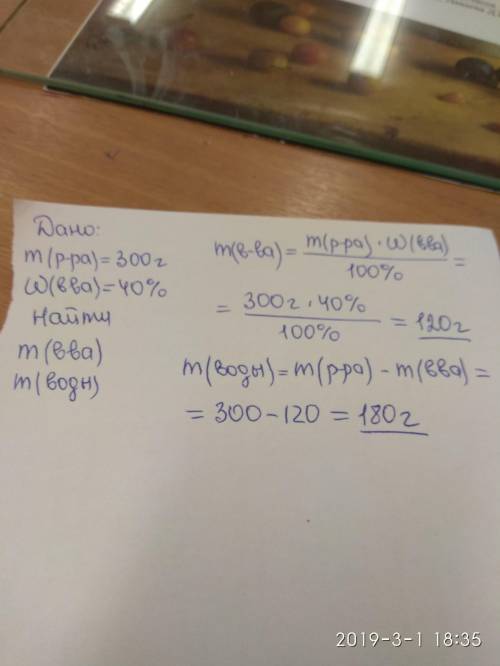 Дано:
m(р-ра) = 300г
ω(вва) = 40%
Найти
m(вва)
m(водн)
m(в-ва) = m(р-ра) · ω(вва) / 100% =
= 300г · 40% / 100% = 120г
m(воды) = m(р-ра) - m(вва) =
= 300 - 120 = 180г
2019-3-1 18:35